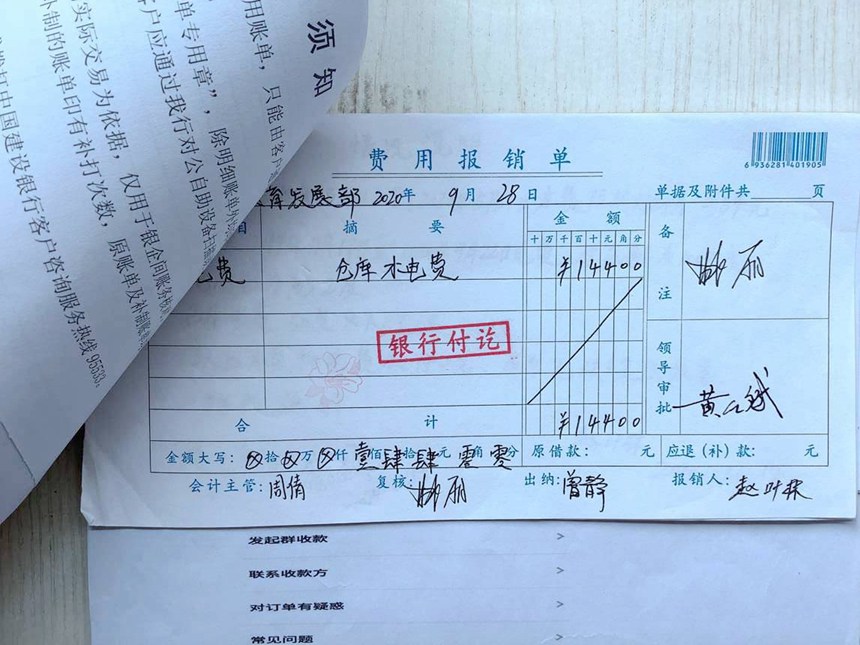 须知
用账单，只能由客户
单专用章”，除明细账单外
客户应通过我行对公自助设备
实际交易为依据，仅用于银企间账务核
补制的账单印有补打次数，原账单及补制账单
拨打中国建设银行客户咨询服务热线95533。
费用报销单
6 936281 401905
育发展部 2020年 9月 28日 单据及附件共 页
目 摘要 金额 备注
十万千百十元角分
电费 仓库水电费 ¥14400
丽
银行付讫
领导审批 黄
合计 ¥14400
金额大写：⊗拾⊗万⊗仟壹佰肆拾肆元零角零分 原借款： 元 应退（补）款： 元
会计主管：周倩 复核：丽 出纳：曾静 报销人：赵叶
发起群收款 >
联系收款方 >
对订单有疑惑 >
常见问题 >